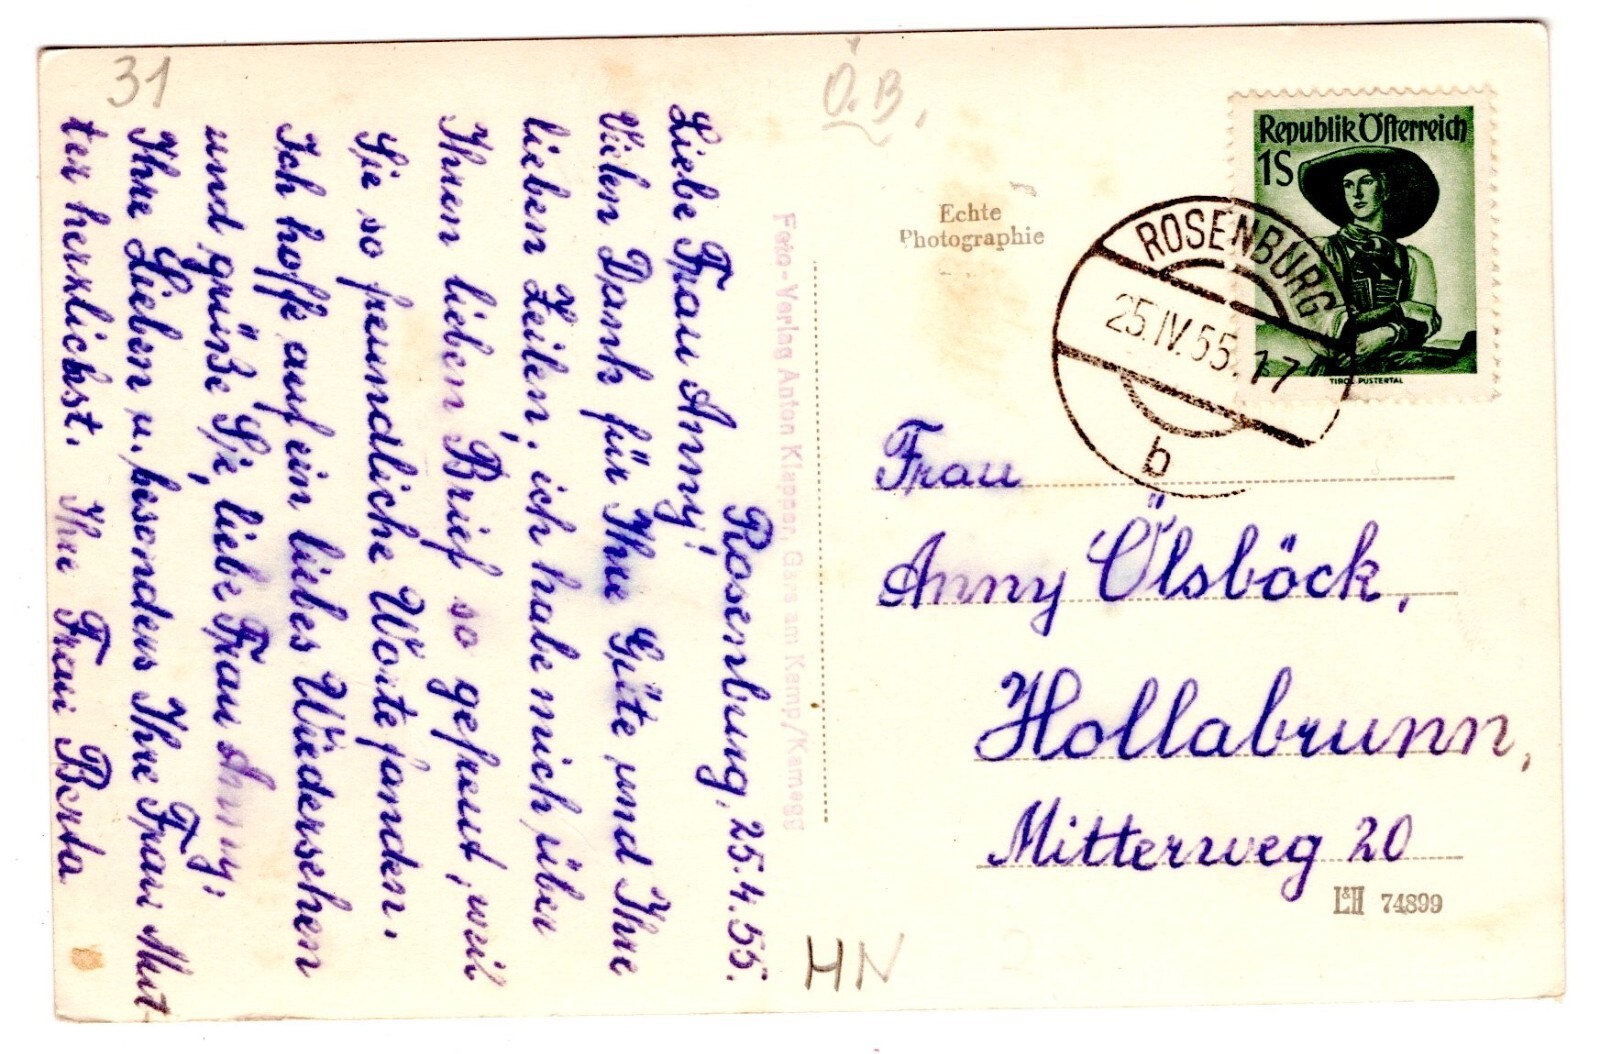 31
Ö.B.
Rosenburg, 25.4.55.
Liebe Frau Anny!
Vielen Dank für Ihre Güte und Ihre
lieben Zeilen, ich habe mich über
Ihren lieben Brief so gefreut, weil
Sie so freundliche Worte fanden.
Ich hoffe auf ein liebes Wiedersehen
und grüße Sie, liebe Frau Anny,
Ihre Lieben u. besonders Ihre Frau Mut-
ter herzlichst. Ihre Frau Berta
Foto-Verlag Anton Klapper, Gars am Kamp/Kamegg
Echte
Photographie
Republik Österreich
1S
TIROL PUSTERTAL
ROSENBURG
25.IV.55.17
b
Frau
Anny Ölsböck,
Hollabrunn,
Mitterweg 20
L&H 74899
HN